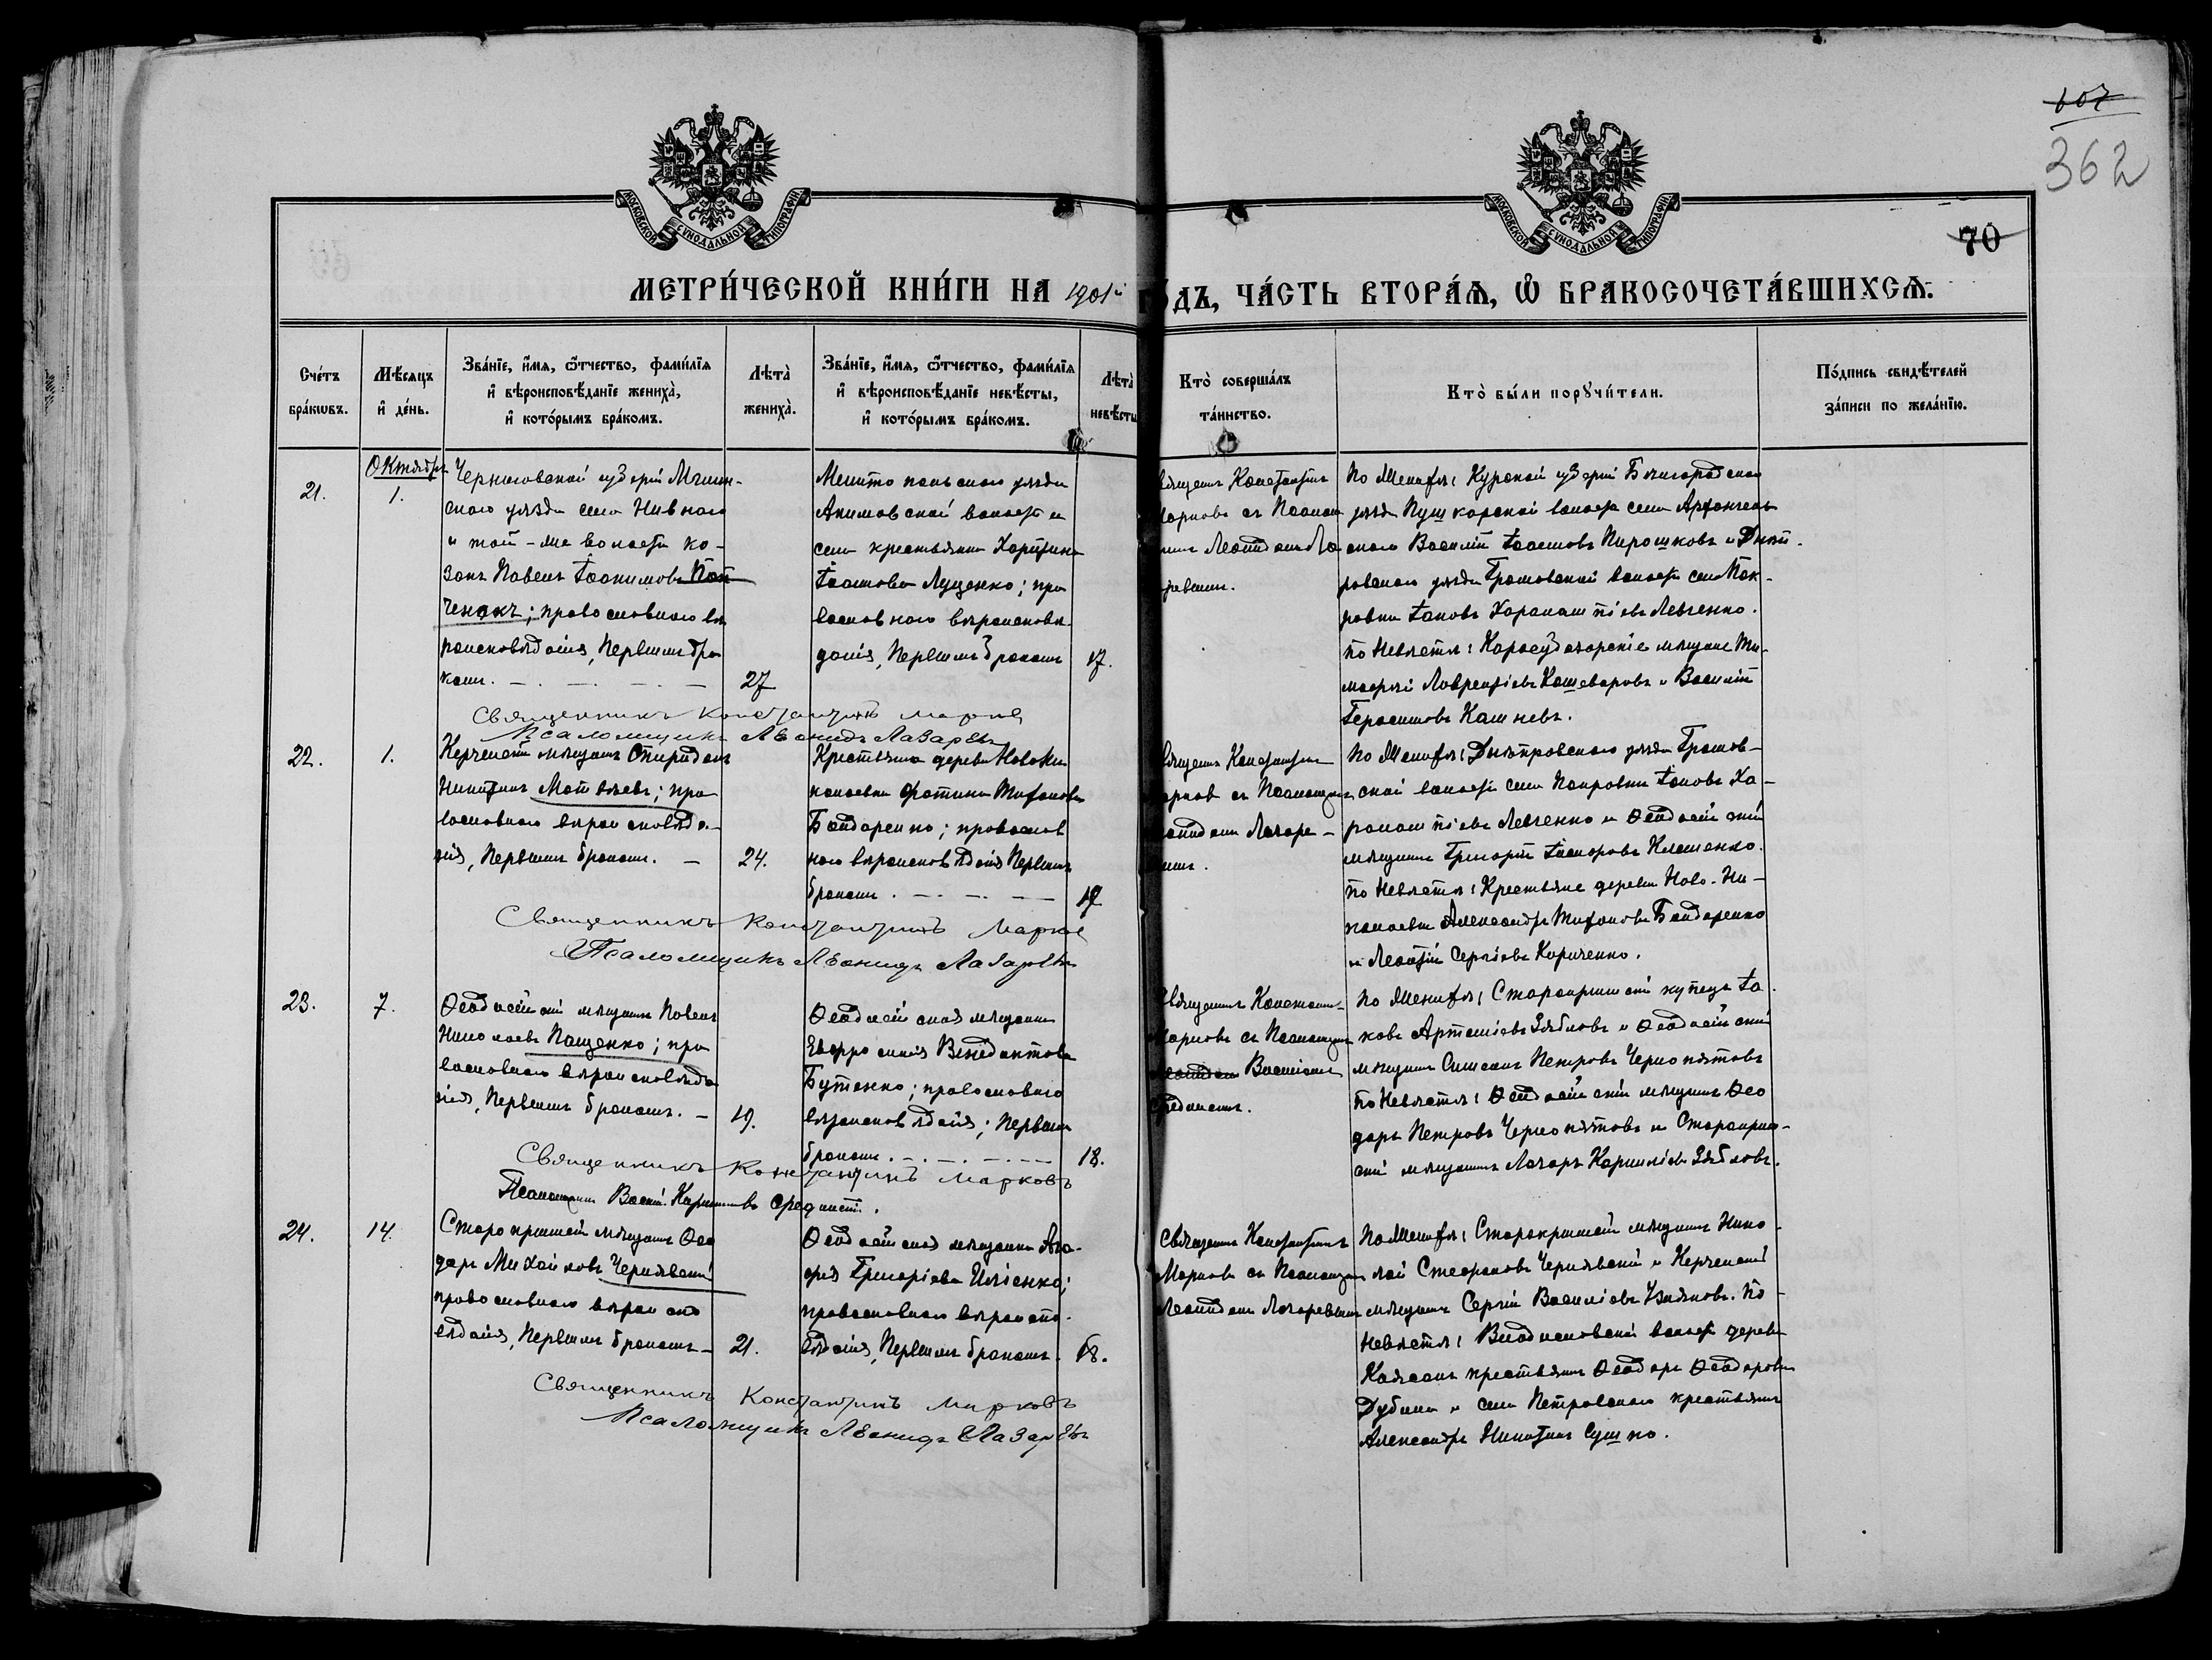 607
362
70
МОСКОВСКОЙ СѴНОДАЛЬНОЙ ТИПОГРАФІИ
МОСКОВСКОЙ СѴНОДАЛЬНОЙ ТИПОГРАФІИ
МЕТРИ́ЧЕСКОЙ КНИ́ГИ НА 1901й ГО́ДЪ, ЧА́СТЬ ВТОРА́Ѧ, Ѡ҆ БРАКОСОЧЕТА́ВШИХСѦ.
Сче́тъ бра́кѡвъ.
Мѣ́сяцъ и҆ де́нь.
Зва́нїе, и҆́мѧ, ѻ҆́тчество, фами́лїѧ и҆ вѣроисповѣ́данїе жениха̀, и҆ кото́рымъ бра́комъ.
Лѣта̀ жениха̀.
Зва́нїе, и҆́мѧ, ѻ҆́тчество, фами́лїѧ и҆ вѣроисповѣ́данїе невѣ́сты, и҆ кото́рымъ бра́комъ.
Лѣта̀ невѣ́сты
Кто̀ соверша́лъ та́инство.
Кто̀ бы́ли порꙋчи́тели.
По́дпись свидѣ́телей за́писи по жела́нїю.
21.
Октябрь
1.
Черниговской губерніи Мглин-
скаго уѣзда села Нивнаго
и той-же волости ко-
закъ Павелъ Іоакимовъ Пат
ченакъ; православнаго вѣ
роисповѣданія, первымъ бра
комъ.
27
Мелитопольскаго уѣзда
Акимовской волости и
села крестьянка Харитина
Іоаннова Луценко; пра
вославнаго вѣроисповѣ
данія, первымъ бракомъ
17.
Священникъ Константинъ
Марковъ съ Псалом
щикомъ Леонидомъ Ла
заревымъ.
По Женихѣ: Курской губерніи Бѣлгородскаго
уѣзда Пушкарской волости села Архангель
скаго Василій Іоанновъ Пирошковъ и Днѣп-
ровскаго уѣзда Громовской волости села Пок-
ровки Іаковъ Харалампіевъ Левченко.
По Невѣстѣ: Карасубазарскіе мѣщане Ти-
моѳей Лаврентіевъ Кашеваровъ и Василій
Герасимовъ Кашневъ.
Священникъ Константинъ Марков
Псаломщикъ Леонидъ Лазаревъ
22.
1.
Керченскій мѣщанинъ Спиридонъ
Никитинъ Матвѣевъ; пра
вославнаго вѣроисповѣда-
нія, первымъ бракомъ.
24.
Крестьянка деревни Новони
колаевки Фотина Тихонова
Бондаренко; православ
наго вѣроисповѣданія первымъ
бракомъ.
19
Священникъ Константинъ
Марковъ съ Псаломщикомъ
Леонидомъ Лазаре-
вымъ.
По Женихѣ: Днѣпровскаго уѣзда Громов-
ской волости села Покровки Іаковъ Ха-
ралампіевъ Левченко и Ѳеодосійскій
мѣщанинъ Григорій
По Невѣстѣ: Крестьяне деревни Ново-Ни-
колаевки Александръ Тихоновъ Бондаренко
и Леонтій Сергіевъ Кириченко.
Священникъ Константинъ Марков
Псаломщикъ Леонидъ Лазаревъ
23.
7.
Ѳеодосійскій мѣщанинъ Павелъ
Николаевъ Пащенко; пра
вославнаго вѣроисповѣда
нія, первымъ бракомъ.
19.
Ѳеодосійская мѣщанка
Евфросинія Венедиктова
Бутенко; православнаго
вѣроисповѣданія; первымъ
бракомъ.
18.
Священникъ Константинъ
Марковъ съ Псаломщикомъ
Леонидомъ Василіемъ
По Женихѣ: Старокрымскій купецъ Іа
ковъ Артеміевъ Зябловъ и Ѳеодосійскій
мѣщанинъ Симеонъ Петровъ Чернопятовъ
По Невѣстѣ: Ѳеодосійскій мѣщанинъ Ѳео
доръ Петровъ Чернопятовъ и Старокрым-
скій мѣщанинъ Лазарь Корниліевъ Зябловъ.
Священникъ Константинъ Марковъ
Псаломщикъ Василій
24.
14.
Старокрымскій мѣщанинъ Ѳео
доръ Михаиловъ Чернявскій
православнаго вѣроиспо
вѣданія, первымъ бракомъ
21.
Ѳеодосійская мѣщанка Ага-
фія Григоріева Иліенко;
православнаго вѣроиспо-
вѣданія, первымъ бракомъ.
18.
Священникъ Константинъ
Марковъ съ Псаломщикомъ
Леонидомъ Лазаревымъ
По Женихѣ: Старокрымскій мѣщанинъ Нико-
лай Стефановъ Чернявскій и Керченскій
мѣщанинъ Сергій Василіевъ По
Невѣстѣ: Владиславской волости деревни
крестьянинъ Ѳеодоръ Ѳеодоровъ
Дубина и села Петровскаго крестьянинъ
Александръ Никитинъ Сушко.
Священникъ Константинъ Марковъ
Псаломщикъ Леонидъ Лазаревъ